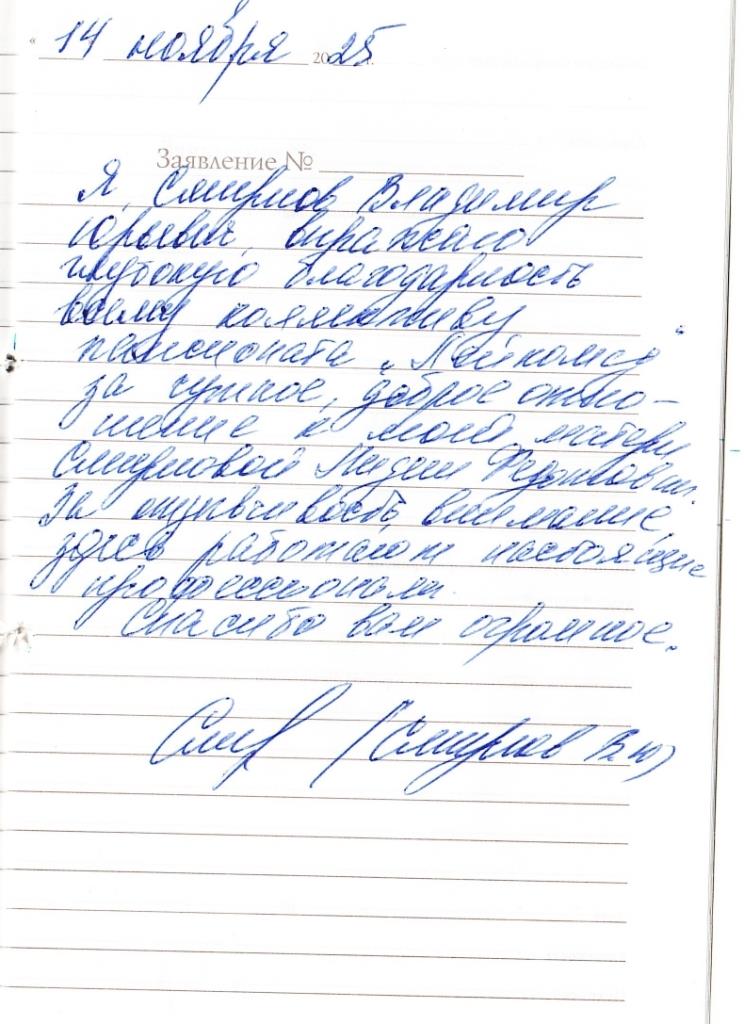 « 14 ноября 2025 г.
Заявление №
Я, Смирнов Владимир
Юрьевич, выражаю
глубокую благодарность
всему коллективу
пансионата „
за чуткое, доброе отно-
шение к моей матери
Смирновой Лидии
За отзывчивость, внимание,
здесь работают настоящие
профессионалы.
Спасибо вам огромное.
(Смирнов В.Ю)